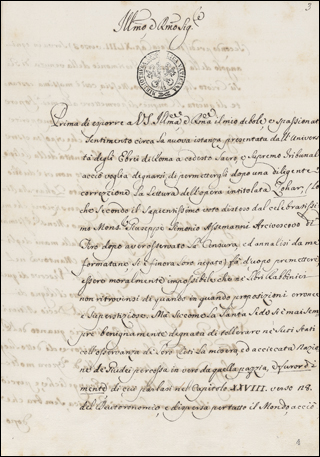 3
Illmo e Rmo Sig.e
Prima di esporre a V.S. Illma e Rma il mio debole, e spassionato
Sentimento circa la nuova istanza presentata dall'Universi
tà degli Ebrei di Roma a codesto Sacro, e Supremo Tribunale
acciò voglia degnarsi di permettergli dopo una diligente
correzione la Lettura dell'opera intitolata Zohar, lo
che secondo il Sapientissimo voto disteso dal celebratissi
mo Mons. Giuseppe Simonio Assemanni Arcivescovo di
Tiro dopo aver osservato la Censura, ed annalisi da me
formatane si è finora loro negato; fà d'uopo premettere
essere moralmente impossibile che ne' Libri Rabbinici
non ritrovinsi di quando in quando proposizioni erronee
e Superstiziose. Ma siccome la Santa Sede si è mai Sem
pre benignamente degnata di tollerare ne' Suoi Stati
coll'osservanza di loro la misera, ed acciecata Nazio
ne de' Giudei percossa in vero da quella pazzia, e furor di
mente di cui parlasi nel Capitolo XXVIII. verso 28.
del Deuteronomio, e dispersa per tutto il Mondo acciò